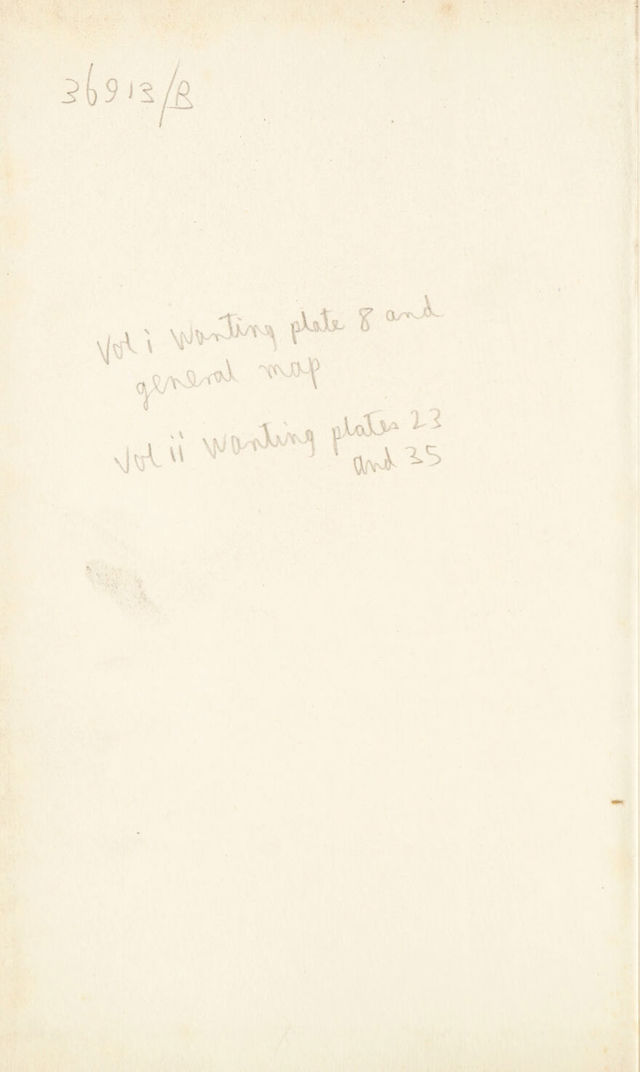 36913/B
Vol i Wanting plate 8 and
general map
Vol ii Wanting plates 23
and 35